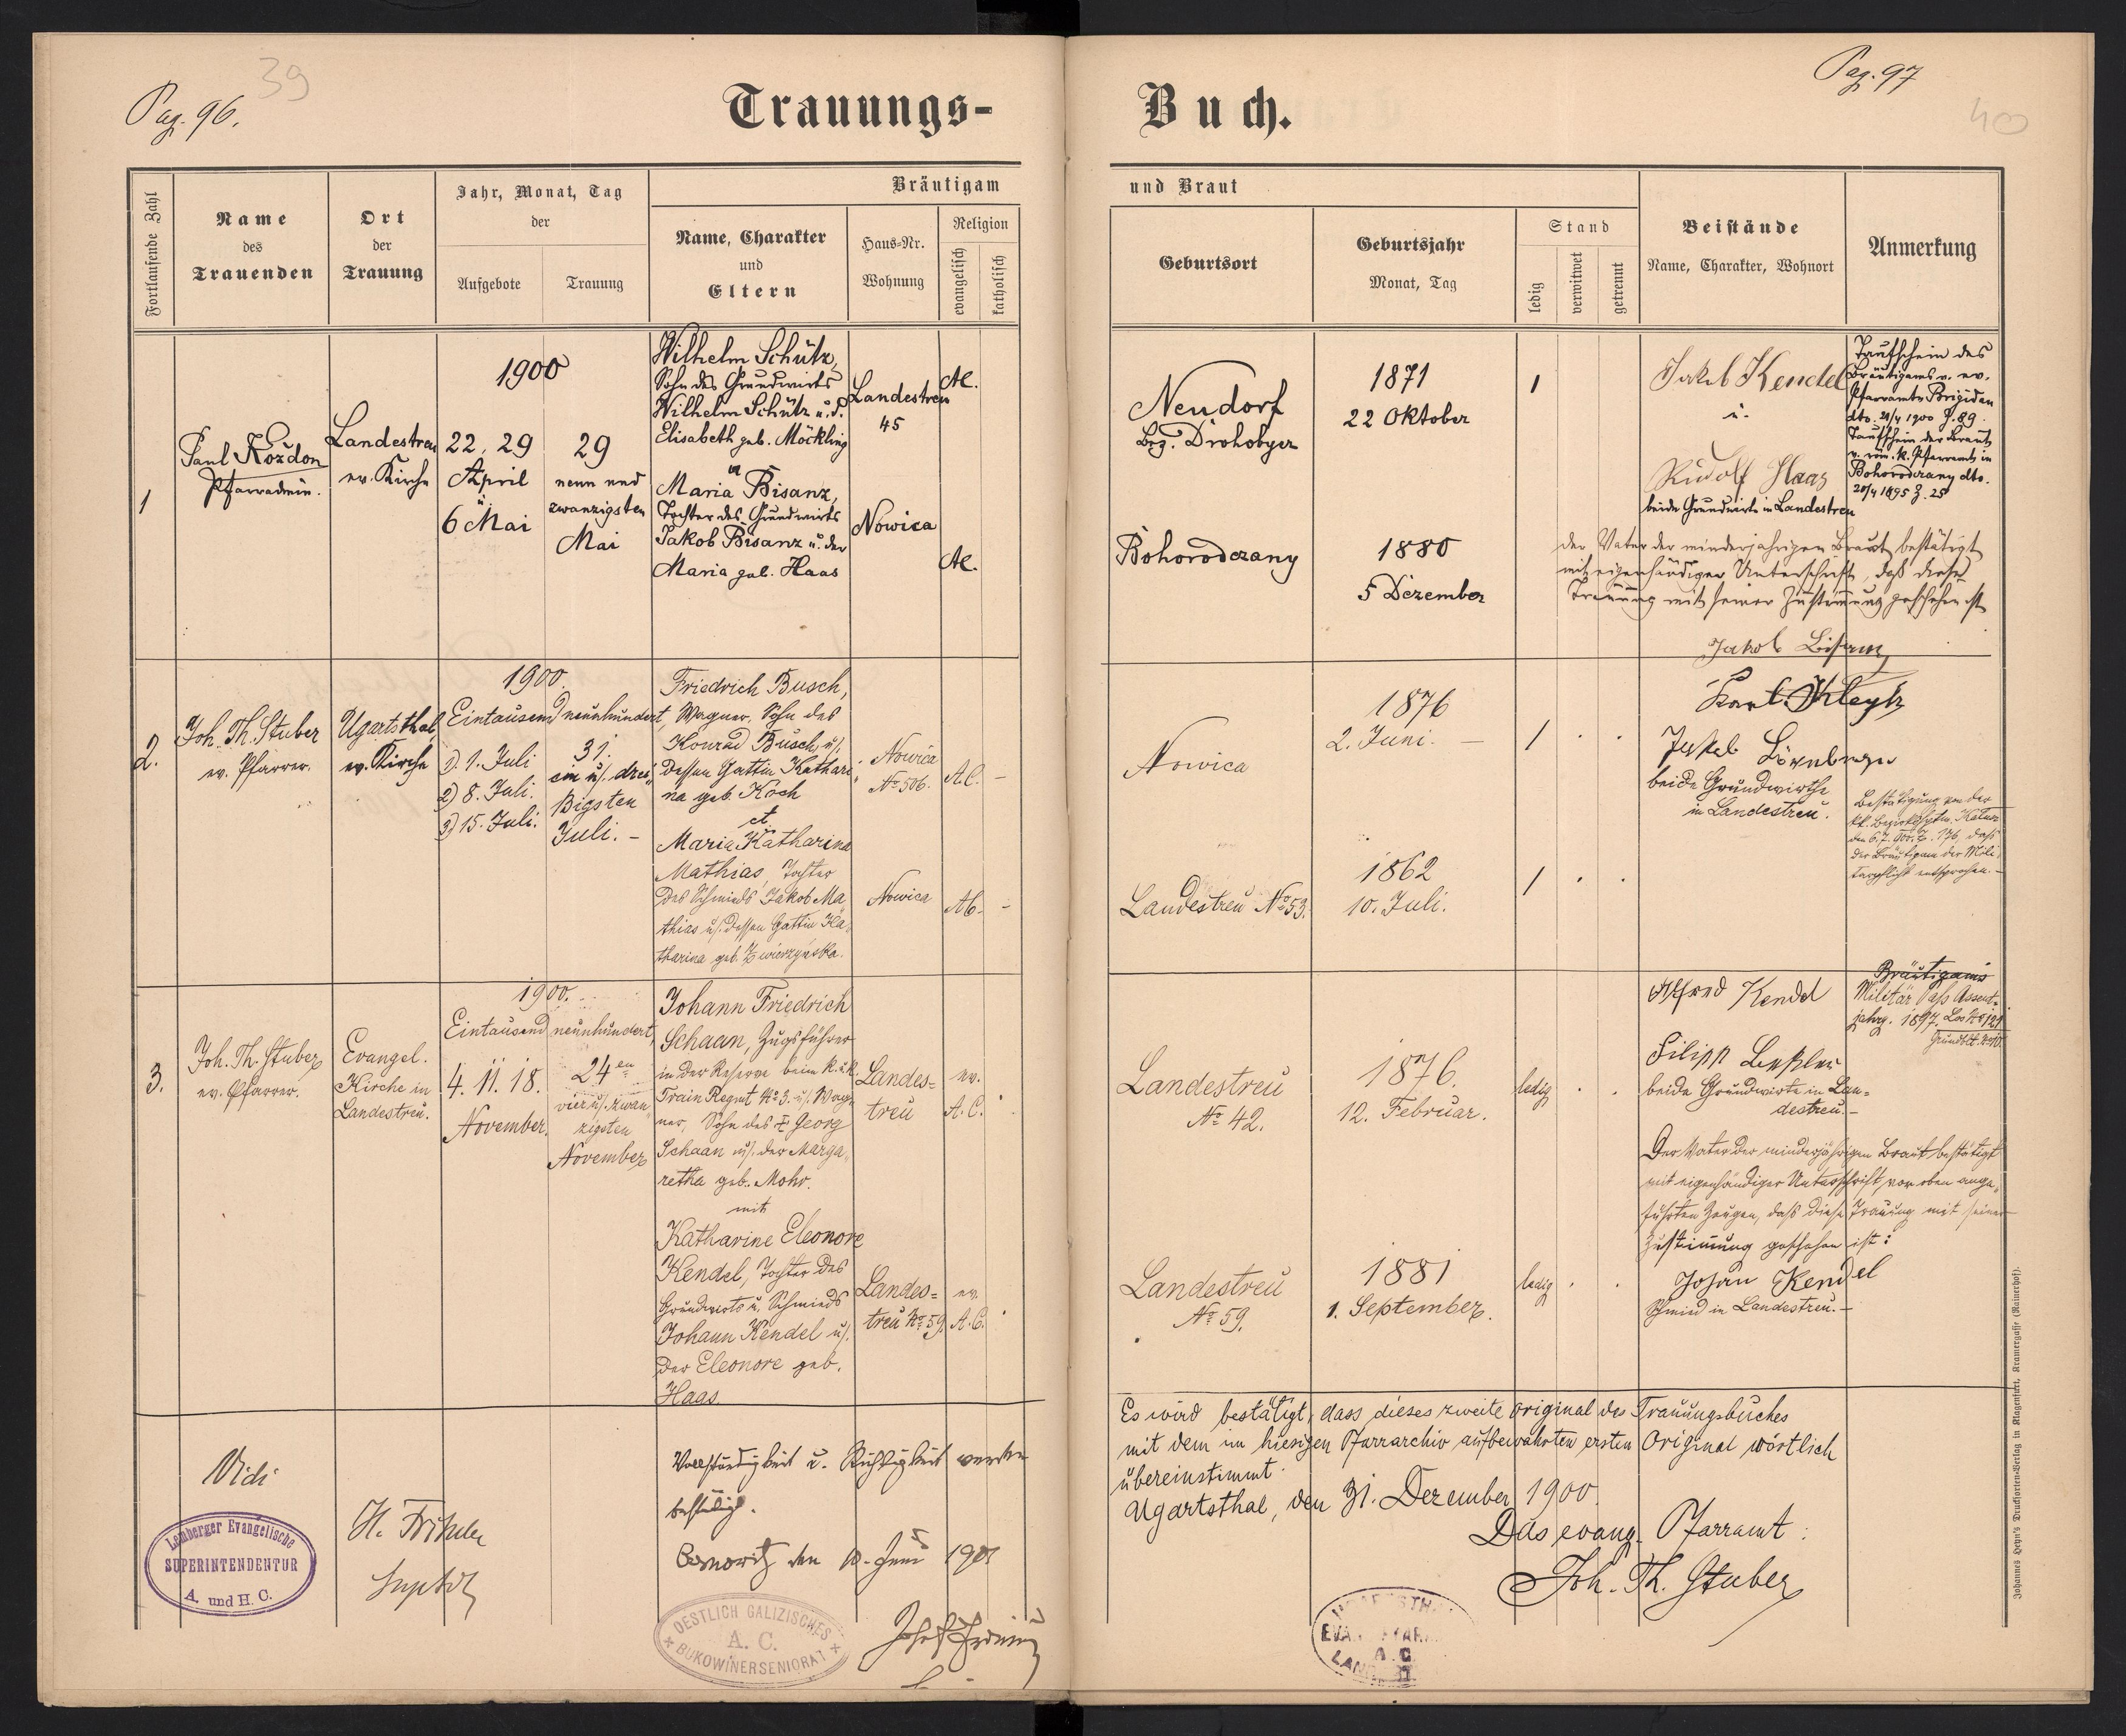 Pag. 96.
39
Trauungs-
Fortlaufende Zahl
Name
des
Trauenden
Ort
der
Trauung
Jahr, Monat, Tag
der
Aufgebote
Trauung
Bräutigam
Name, Charakter
und
Eltern
Haus-Nr.
Wohnung
Religion
evangelisch
katholisch
1
Paul Kozdon
Pfarradmin.
Landestreu
ev. Kirche
1900
22, 29
April
u.
6 Mai
29
neun und
zwanzigsten
Mai
Wilhelm Schütz,
Sohn des Grundwirts
Wilhelm Schütz u. d.
Elisabeth geb. Möckling
u
Maria Bisanz,
Tochter des Grundwirts
Jakob Bisanz u. der
Maria geb. Haas
Landestreu
45
Nowica
AC.
AC.
2.
Joh. Th. Stuber
ev. Pfarrer.
Ugartsthal,
ev. Kirche
1900.
Eintausend neunhundert,
1) 1. Juli
2) 8. Juli.
3) 15. Juli.
31.
ein u/. drei-
ßigsten
Juli. -
Friedrich Busch,
Wagner, Sohn des
Konrad Busch u/.
dessen Gattin Kathari-
na geb. Koch
et
Maria Katharina
Mathias, Tochter
des Schmieds Jakob Ma-
thias u/. dessen Gattin Ka-
tharina geb. Zwierzynska.
Nowica
No 506.
Nowica
A.C. -
AC. -
3.
Joh. Th. Stuber
ev. Pfarrer.
Evangel.
Kirche in
Landestreu.
1900.
Eintausend neunhundert,
4. 11. 18.
November.
24en
vier u/. zwan
zigsten
November
Johann Friedrich
Schaan, Zugsführer
in der Reserve beim k. u. k.
Train Regmt No 3. u/. Wag-
ner, Sohn des † Georg
Schaan u/. der Marga-
retha geb. Mohr.
mit
Katharine Eleonore
Kendel, Tochter des
Grundwirts u. Schmieds
Johann Kendel u/.
der Eleonore geb.
Haas.
Landes=
treu
Landes=
treu No 59.
ev.
A.C.
ev.
A.C.
Vidi
Lemberger Evangelische
SUPERINTENDENTUR
A. und H. C.
Vollständigkeit u. Richtigkeit werden
bestätigt.
den 10. Juni 1901
OESTLICH GALIZISCHES
A. C.
BUKOWINERSENIORAT
Pag. 97
40
Buch.
und Braut
Geburtsort
Geburtsjahr
Monat, Tag
Stand
ledig
verwitwet
getrennt
Beistände
Name, Charakter, Wohnort
Anmerkung
Neudorf
Bez. Drohobycz
1871
22 Oktober
1
Jakob Kendel
u.
Rudolf Haas
beide Grundwirte in Landestreu
Taufschein des
Bräutigams v. ev.
Pfarramte Brigidau
dto. 21/4 1900 Z. 89.
Taufschein der Braut
v. röm. k. Pfarramt in
Bohorodczany dto.
20/4 1895 Z. 25
Bohorodczany
1880
5 Dezember
der Vater der minderjährigen Braut bestätigt
mit eigenhändiger Unterschrift, daß diese
Trauung mit seiner Zustimmung geschehen ist
Jakob Bisanz
Nowica
1876
2. Juni. -
1
beide Grundwirthe
in Landestreu.
Bestätigung von der
kk. Bezirkshptm. Kalusz
daß
der Bräutigam der Mili-
tärpflicht entsprochen. -
Landestreu No 53.
1862
10. Juli.
1
Landestreu
No 42.
1876.
12. Februar.
ledig
Alfred Kendel
Filipp Beßler
beide Grundwirte in Lan=
destreu. -
Bräutigams
Militär Pass Assent-
jahrg. 1897. Los No 121
Landestreu
No 59.
1881
1. September.
ledig
Der Vater der minderjährigen Braut bestätigt
mit eigenhändiger Unterschrift vor oben ange-
führten Zeugen, daß diese Trauung mit seiner
Zustimmung geschehen ist:
Johan Kendel
Schmied in Landestreu. -
Es wird bestätigt, dass dieses zweite Original des Trauungsbuches
mit dem im hiesigen Pfarrarchiv aufbewahrten ersten Original wörtlich
übereinstimmt.
Ugartsthal, den 31. Dezember 1900.
Das evang. Pfarramt:
Joh. Th. Stuber
A.C.
Johannes Heyn's Drucksorten-Verlag in Klagenfurt, Kramergasse (Rainerhof).